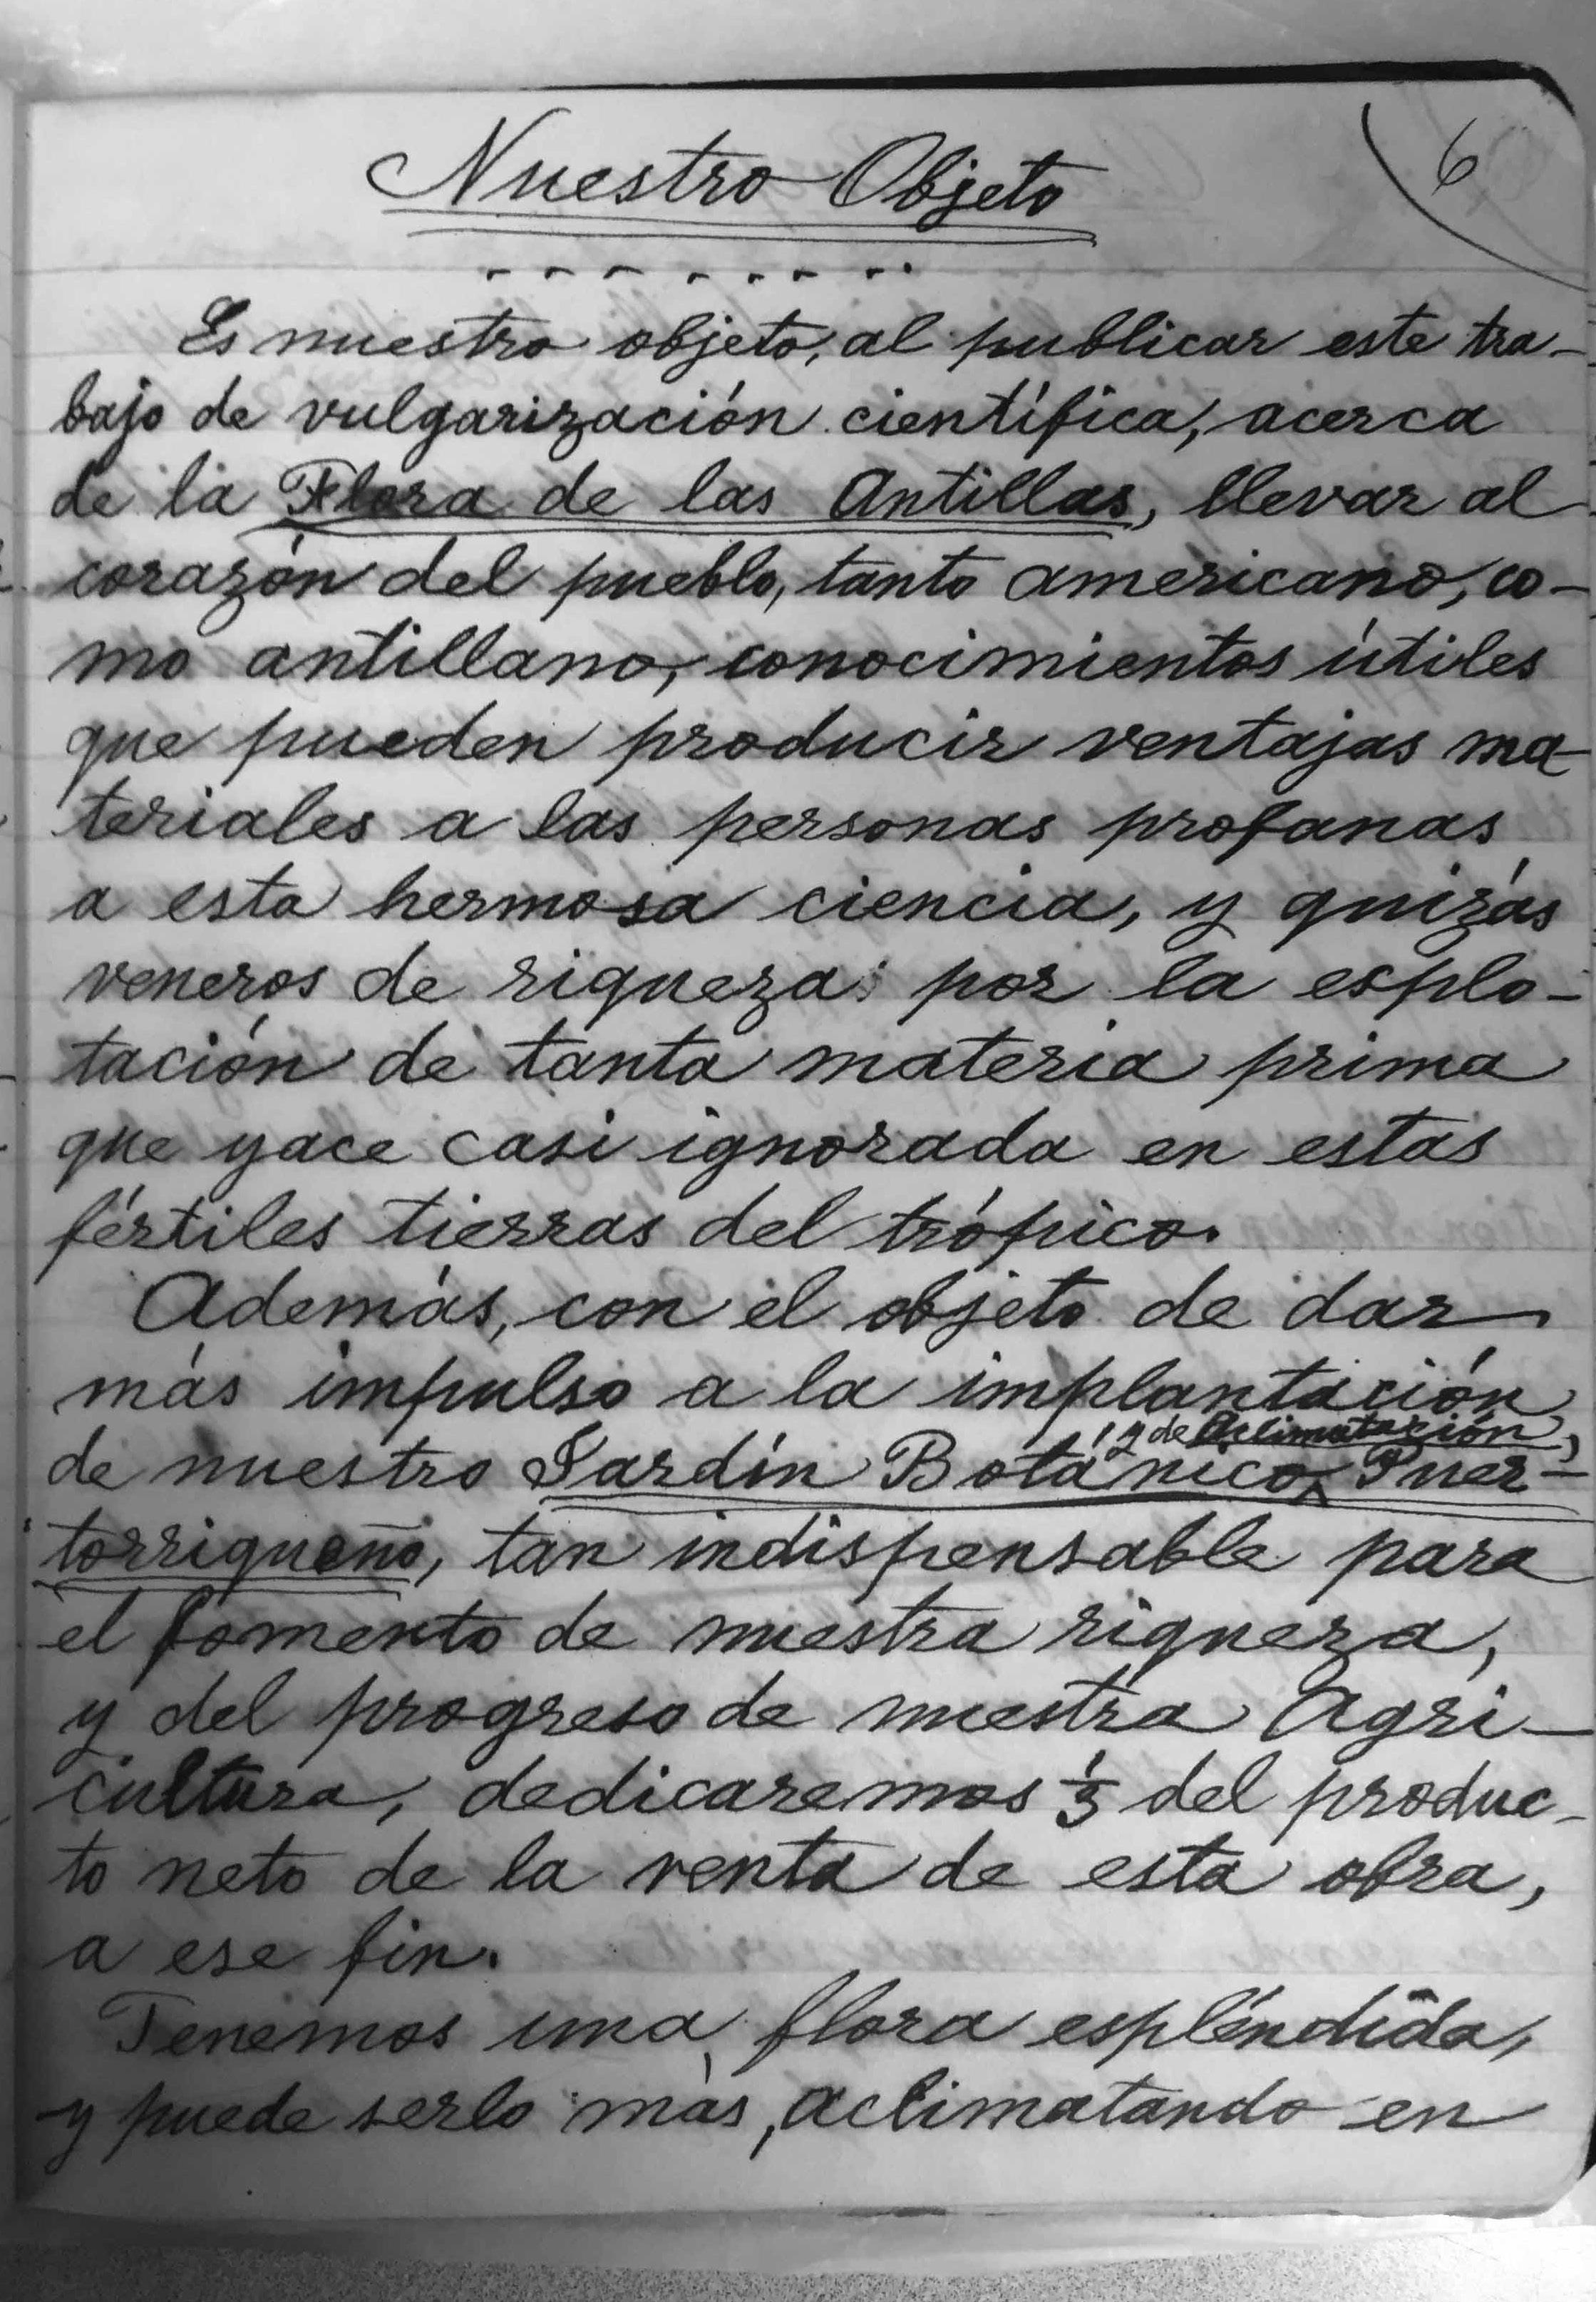 6
Nuestro Objeto
Es nuestro objeto, al publicar este tra-
bajo de vulgarización científica, acerca
de la Flora de las Antillas, llevar al
corazón del pueblo, tanto americano, co-
mo antillano, conocimientos útiles
que pueden producir ventajas ma-
teriales a las personas profanas
a esta hermosa ciencia, y quizás
veneros de riqueza por la esplo-
tación de tanta materia prima
que yace casi ignorada en estas
fértiles tierras del trópico.
Además, con el objeto de dar
más impulso a la implantación
y de Aclimatación,
de nuestro Jardín Botánico Puer-
torriqueño, tan indispensable para
el fomento de nuestra riqueza,
y del progreso de nuestra Agri-
cultura, dedicaremos 1/3 del produc-
to neto de la venta de esta obra,
a ese fin.
Tenemos una flora espléndida,
y puede serlo más, aclimatando en